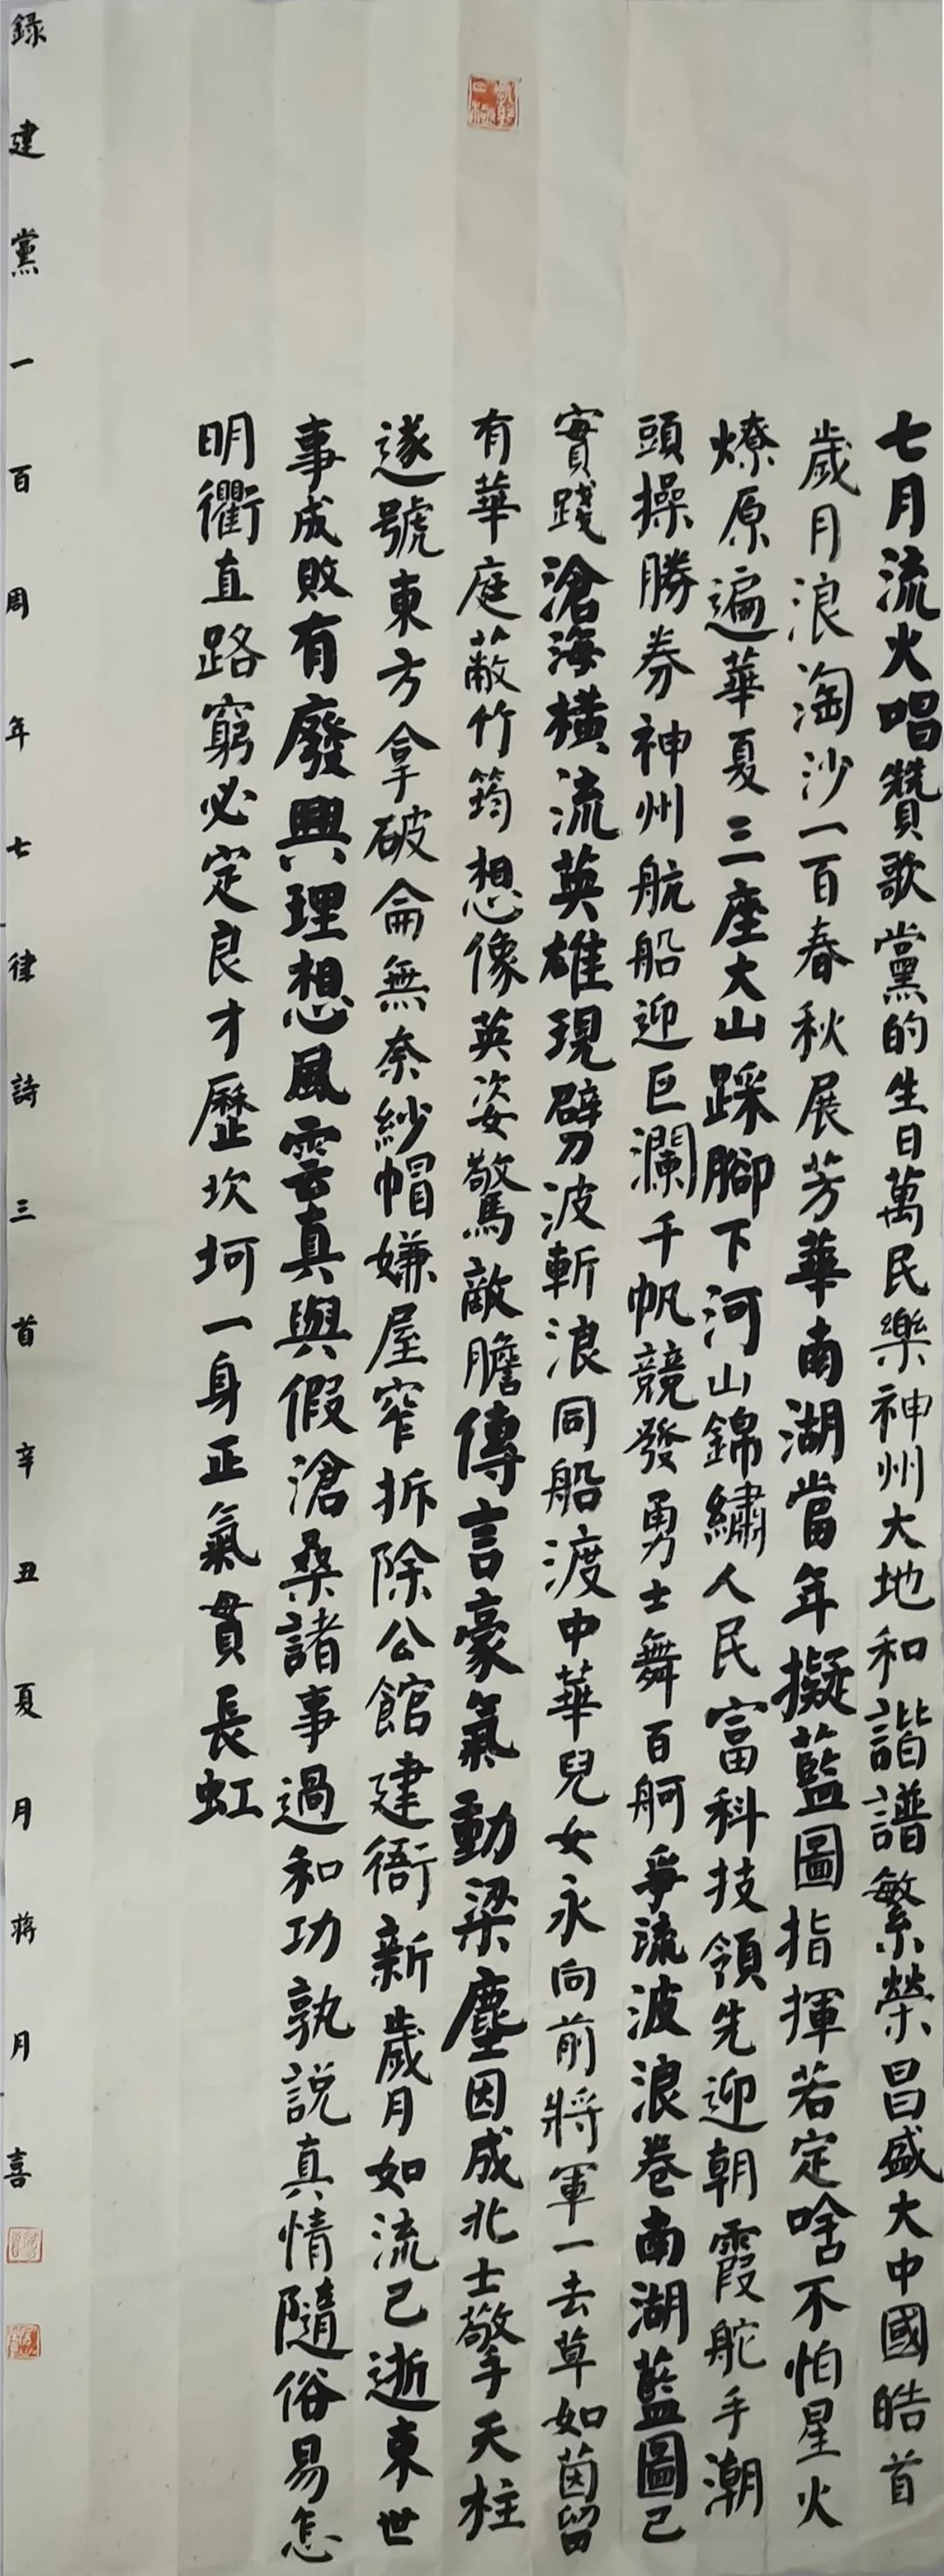 七月流火唱贊歌黨的生日萬民樂神州大地和諧譜繁榮昌盛大中國皓首
歲月浪淘沙一百春秋展芳華南湖當年擬藍圖指揮若定啥不怕星火
燎原遍華夏三座大山踩腳下河山錦繡人民富科技領先迎朝霞舵手潮
頭操勝券神州航船迎巨瀾千帆競發勇士舞百舸爭流波浪卷南湖藍圖已
實踐滄海橫流英雄現劈波斬浪同船渡中華兒女永向前將軍一去草如茵留
有華庭蔽竹筠想像英姿驚敵膽傳言豪氣動梁塵因成北士擎天柱
遂號東方拿破侖無奈紗帽嫌屋窄拆除公館建衙新歲月如流已逝東世
事成敗有廢興理想風雲真與假滄桑諸事過和功孰説真情隨俗易怎
明衢直路窮必定良才歷坎坷一身正氣貫長虹
録建黨一百周年七律詩三首辛丑夏月蔣月喜